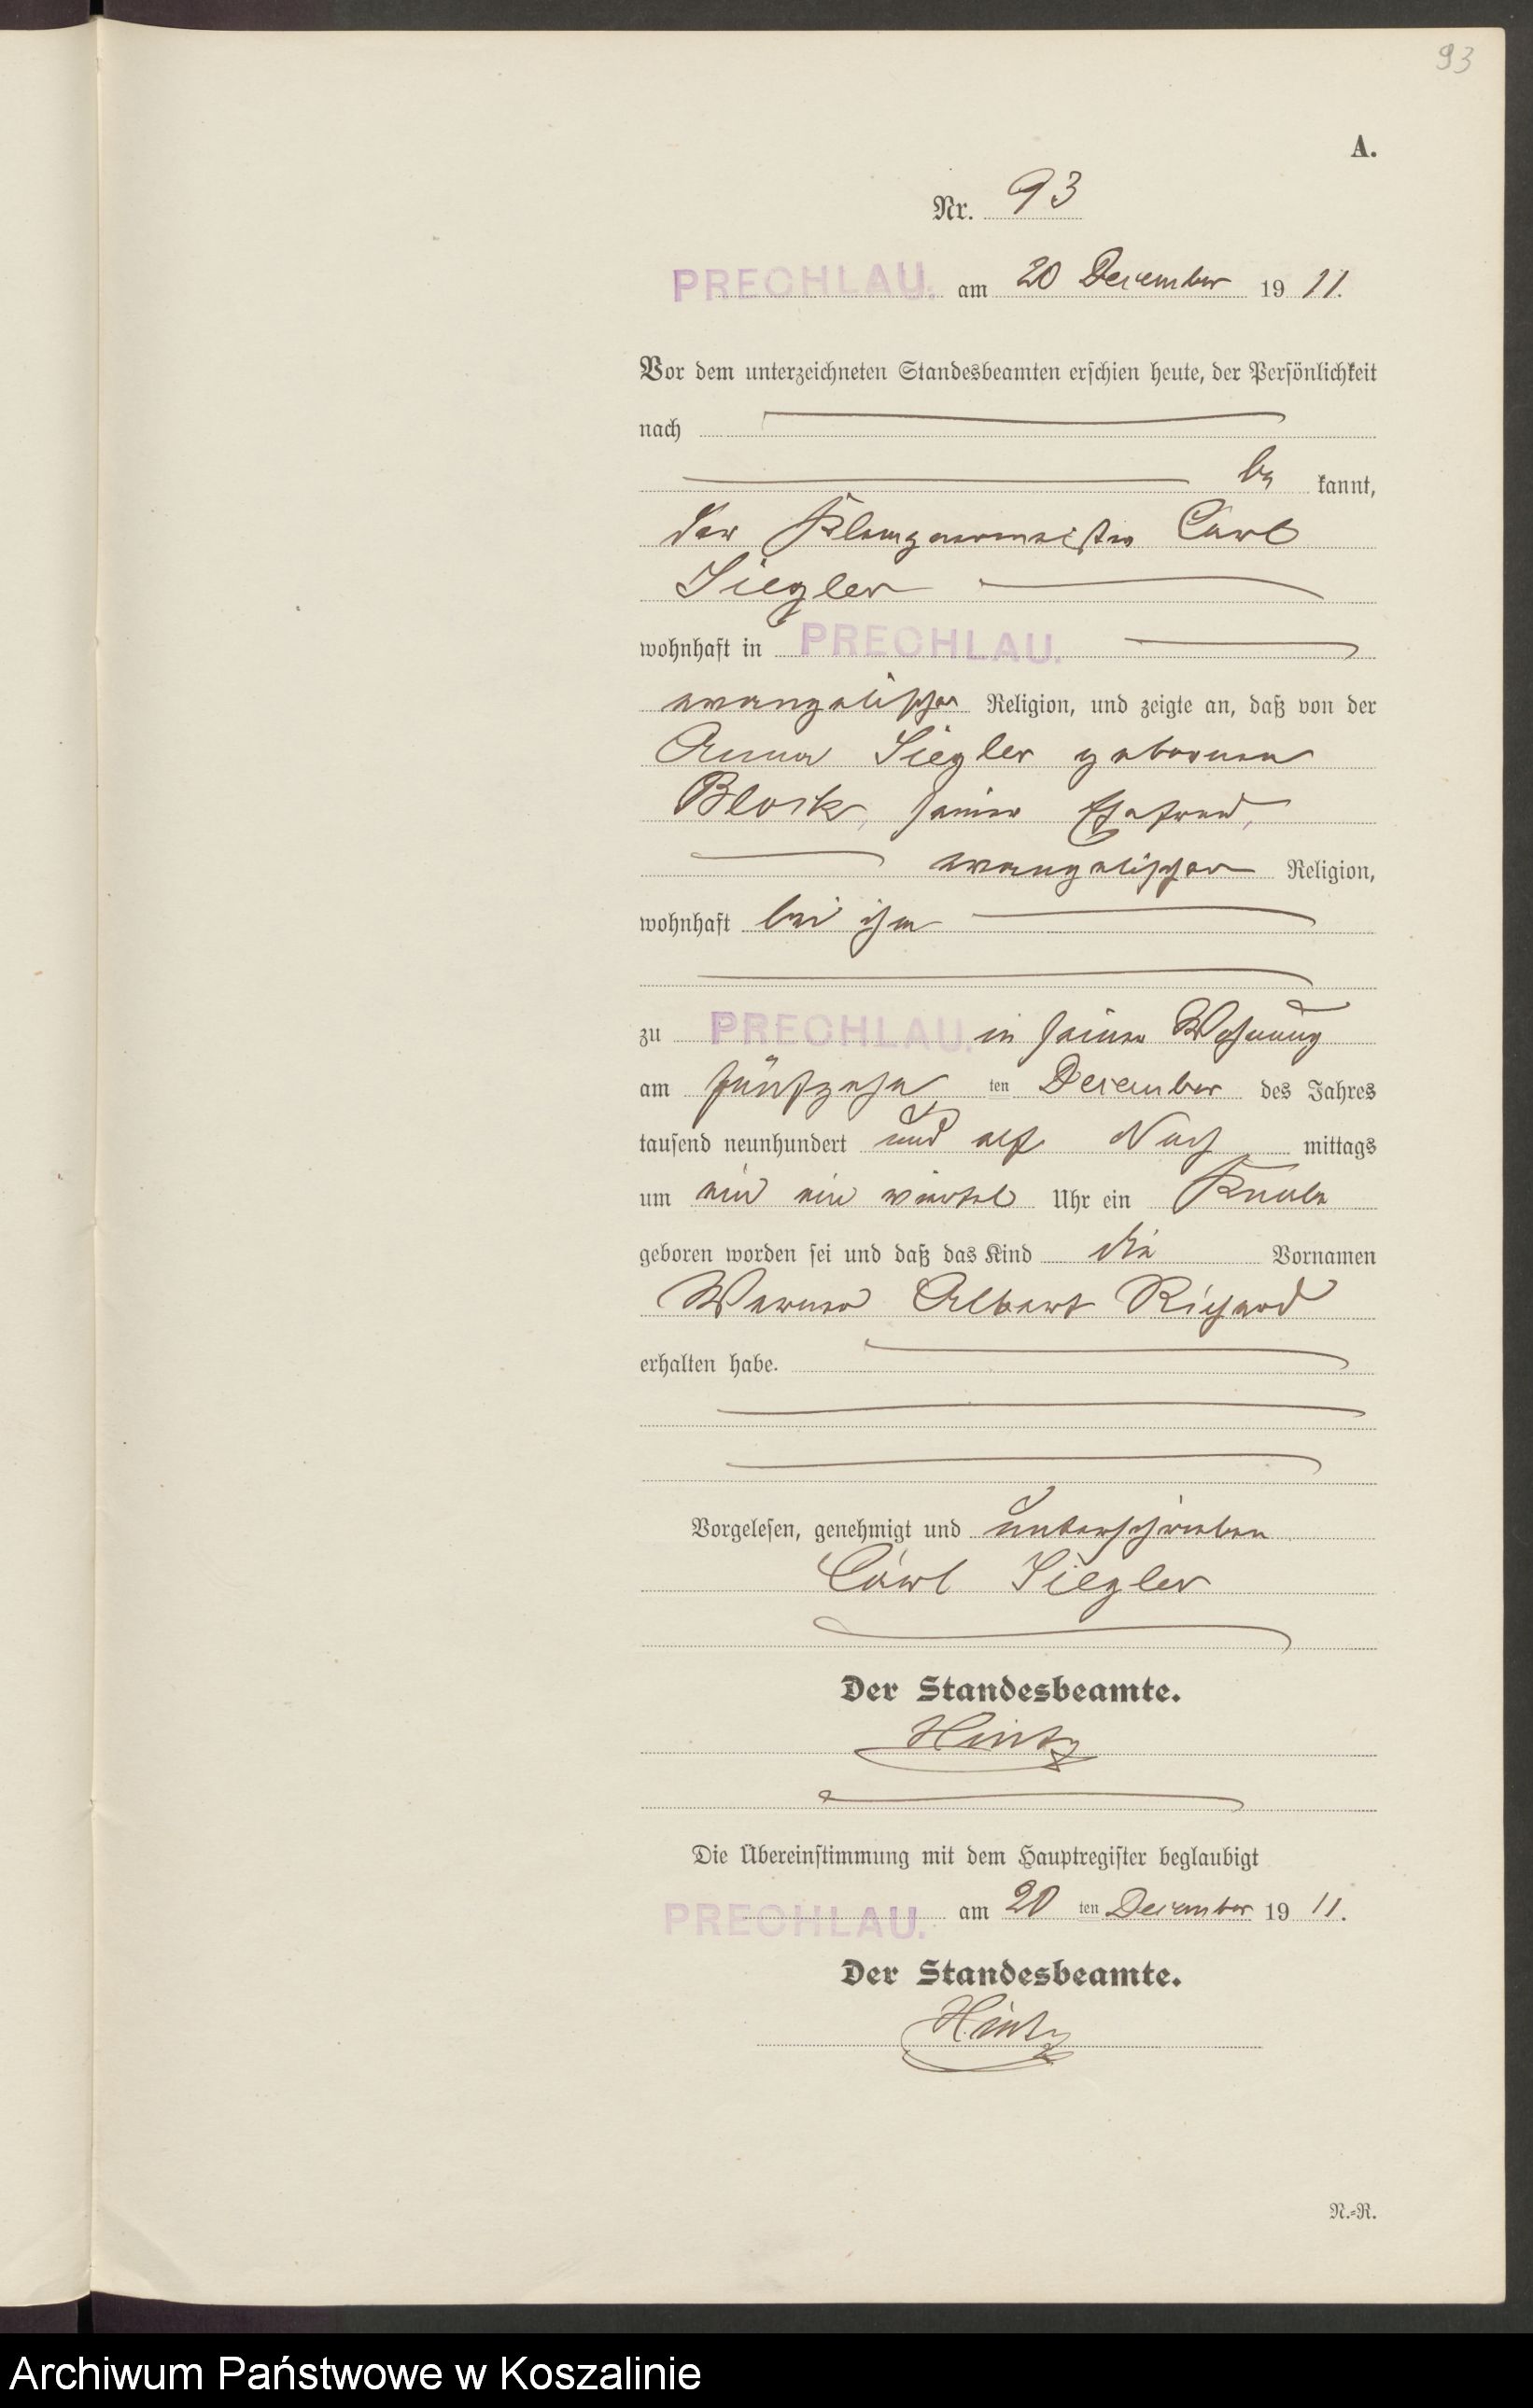 93
A.
Nr. 93
PRECHLAU. am 20 December 19 11.
Vor dem unterzeichneten Standesbeamten erschien heute, der Persönlichkeit
nach
be kannt,
der Klempnermeister Carl
Siegler
wohnhaft in PRECHLAU.
evangelischer Religion, und zeigte an, daß von der
Anna Siegler geborenen
Block, seiner Ehefrau,
evangelischer Religion,
wohnhaft bei ihm
zu PRECHLAU. in seiner Wohnung
am fünfzehn ten December des Jahres
tausend neunhundert und elf Nach mittags
um ein ein viertel Uhr ein Knabe
geboren worden sei und daß das Kind die Vornamen
Werner Albert Richard
erhalten habe.
Vorgelesen, genehmigt und unterschrieben
Carl Siegler
Der Standesbeamte.
Hintz
Die Übereinstimmung mit dem Hauptregister beglaubigt
PRECHLAU. am 20 ten December 19 11.
Der Standesbeamte.
Hintz
N.=R.
Archiwum Państwowe w Koszalinie